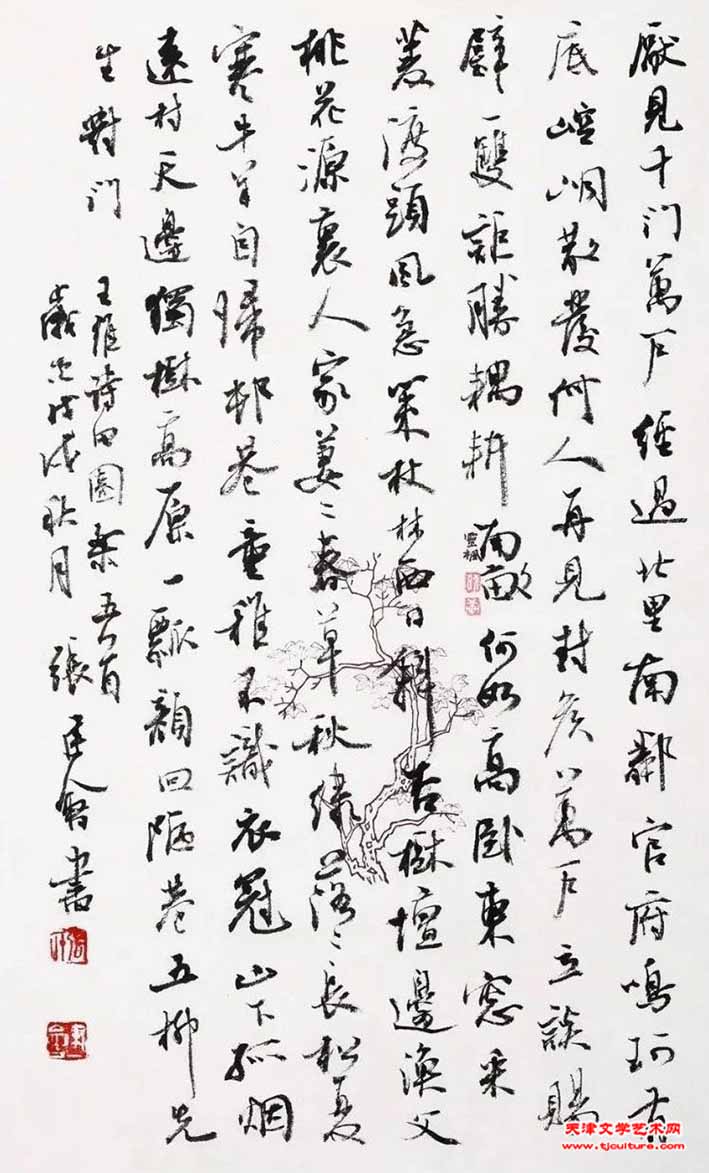 厭見千门萬户經過北里南鄰官府鳴珂有
底崆峒散發何人再見封侯萬户立談賜
璧一雙詎勝耦耕南畝何如高卧東窓采
菱渡頭風急策杖林西日斜杏樹壇邊漁父
桃花源裏人家萋〻春草秋綠落〻長松夏
寒牛羊自歸邨巷童稚不識衣冠山下孤烟
遠村天邊獨樹高原一瓢顏回陋巷五柳先
生對门
王維詩田園樂五首
歲次戊戌秋月張建會書
天津文学艺术网
www.tjculture.com